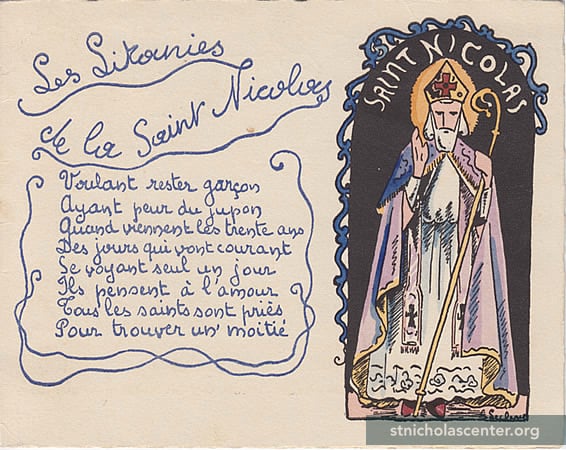 Les Litanies
de la Saint Nicolas
Voulant rester garçon
Ayant peur du jupon
Quand viennent les trente ans
Des jours qui vont courant
Se voyant seul un jour
Ils pensent à l'amour
Tous les saints sont priés
Pour trouver un' moitié
SAINT NICOLAS
stnicholascenter.org